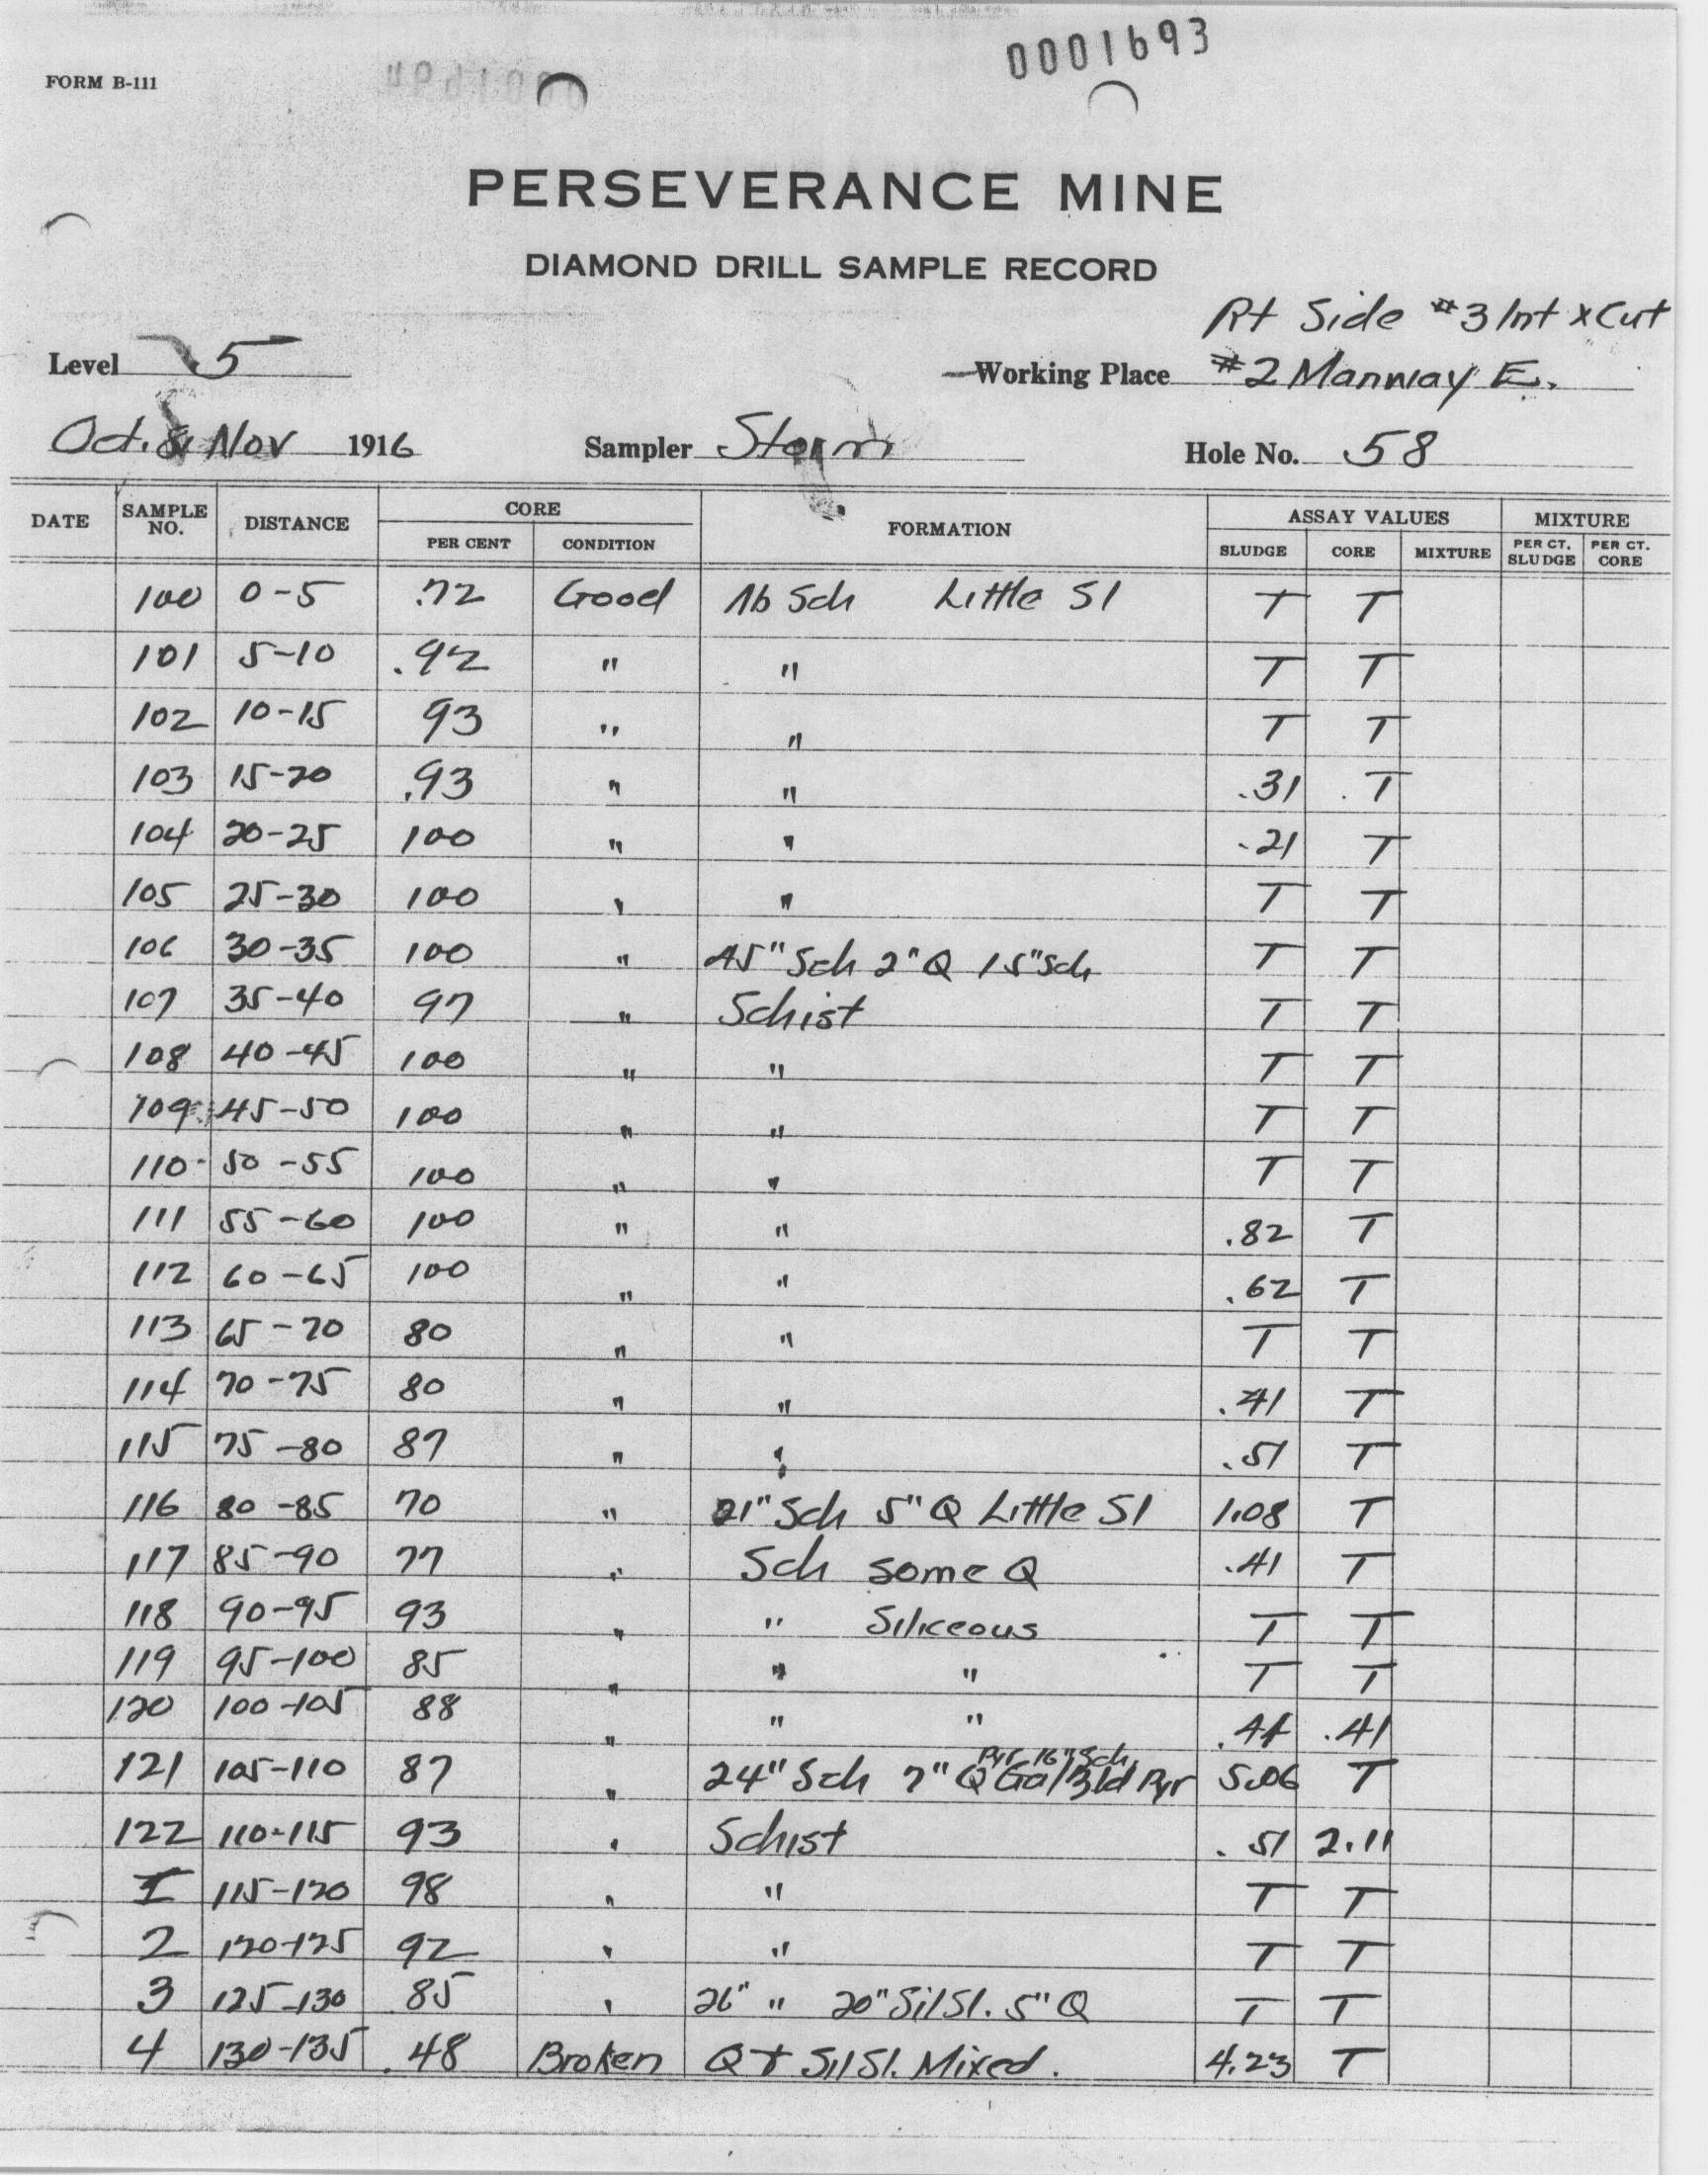 0001693
FORM B-111
PERSEVERANCE MINE
DIAMOND DRILL SAMPLE RECORD
Rt Side #3 Int xCut
Level 5 Working Place #2 Manway E.
Oct. & Nov 1916 Sampler Hole No. 58
DATE SAMPLE NO. DISTANCE CORE FORMATION ASSAY VALUES MIXTURE
PER CENT CONDITION SLUDGE CORE MIXTURE PER CT. SLUDGE PER CT. CORE
100 0-5 .72 Good Sch Little Sl T T
101 5-10 .92 " " T T
102 10-15 93 " " T T
103 15-20 .93 " " .31 T
104 20-25 100 " " .21 T
105 25-30 100 " " T T
106 30-35 100 " 45" Sch 2" Q 15" Sch T T
107 35-40 97 " Schist T T
108 40-45 100 " " T T
109 45-50 100 " " T T
110 50-55 100 " " T T
111 55-60 100 " " .82 T
112 60-65 100 " " .62 T
113 65-70 80 " " T T
114 70-75 80 " " .41 T
115 75-80 87 " " .51 T
116 80-85 70 " 21" Sch 5" Q Little Sl 1.08 T
117 85-90 77 " Sch some Q .41 T
118 90-95 93 " " Siliceous T T
119 95-100 85 " " " T T
120 100-105 88 " " " .41
121 105-110 87 " 24" Sch 7" Q Gal Bld Pyr 5.06 T
Pyr 16" Sch
122 110-115 93 " Schist .51 2.11
1 115-120 98 " " T T
2 120-125 92 " " T T
3 125-130 85 " 26" " 20" Sil Sl. 5" Q T T
4 130-135 .48 Broken Q + Sil Sl. Mixed. 4.23 T